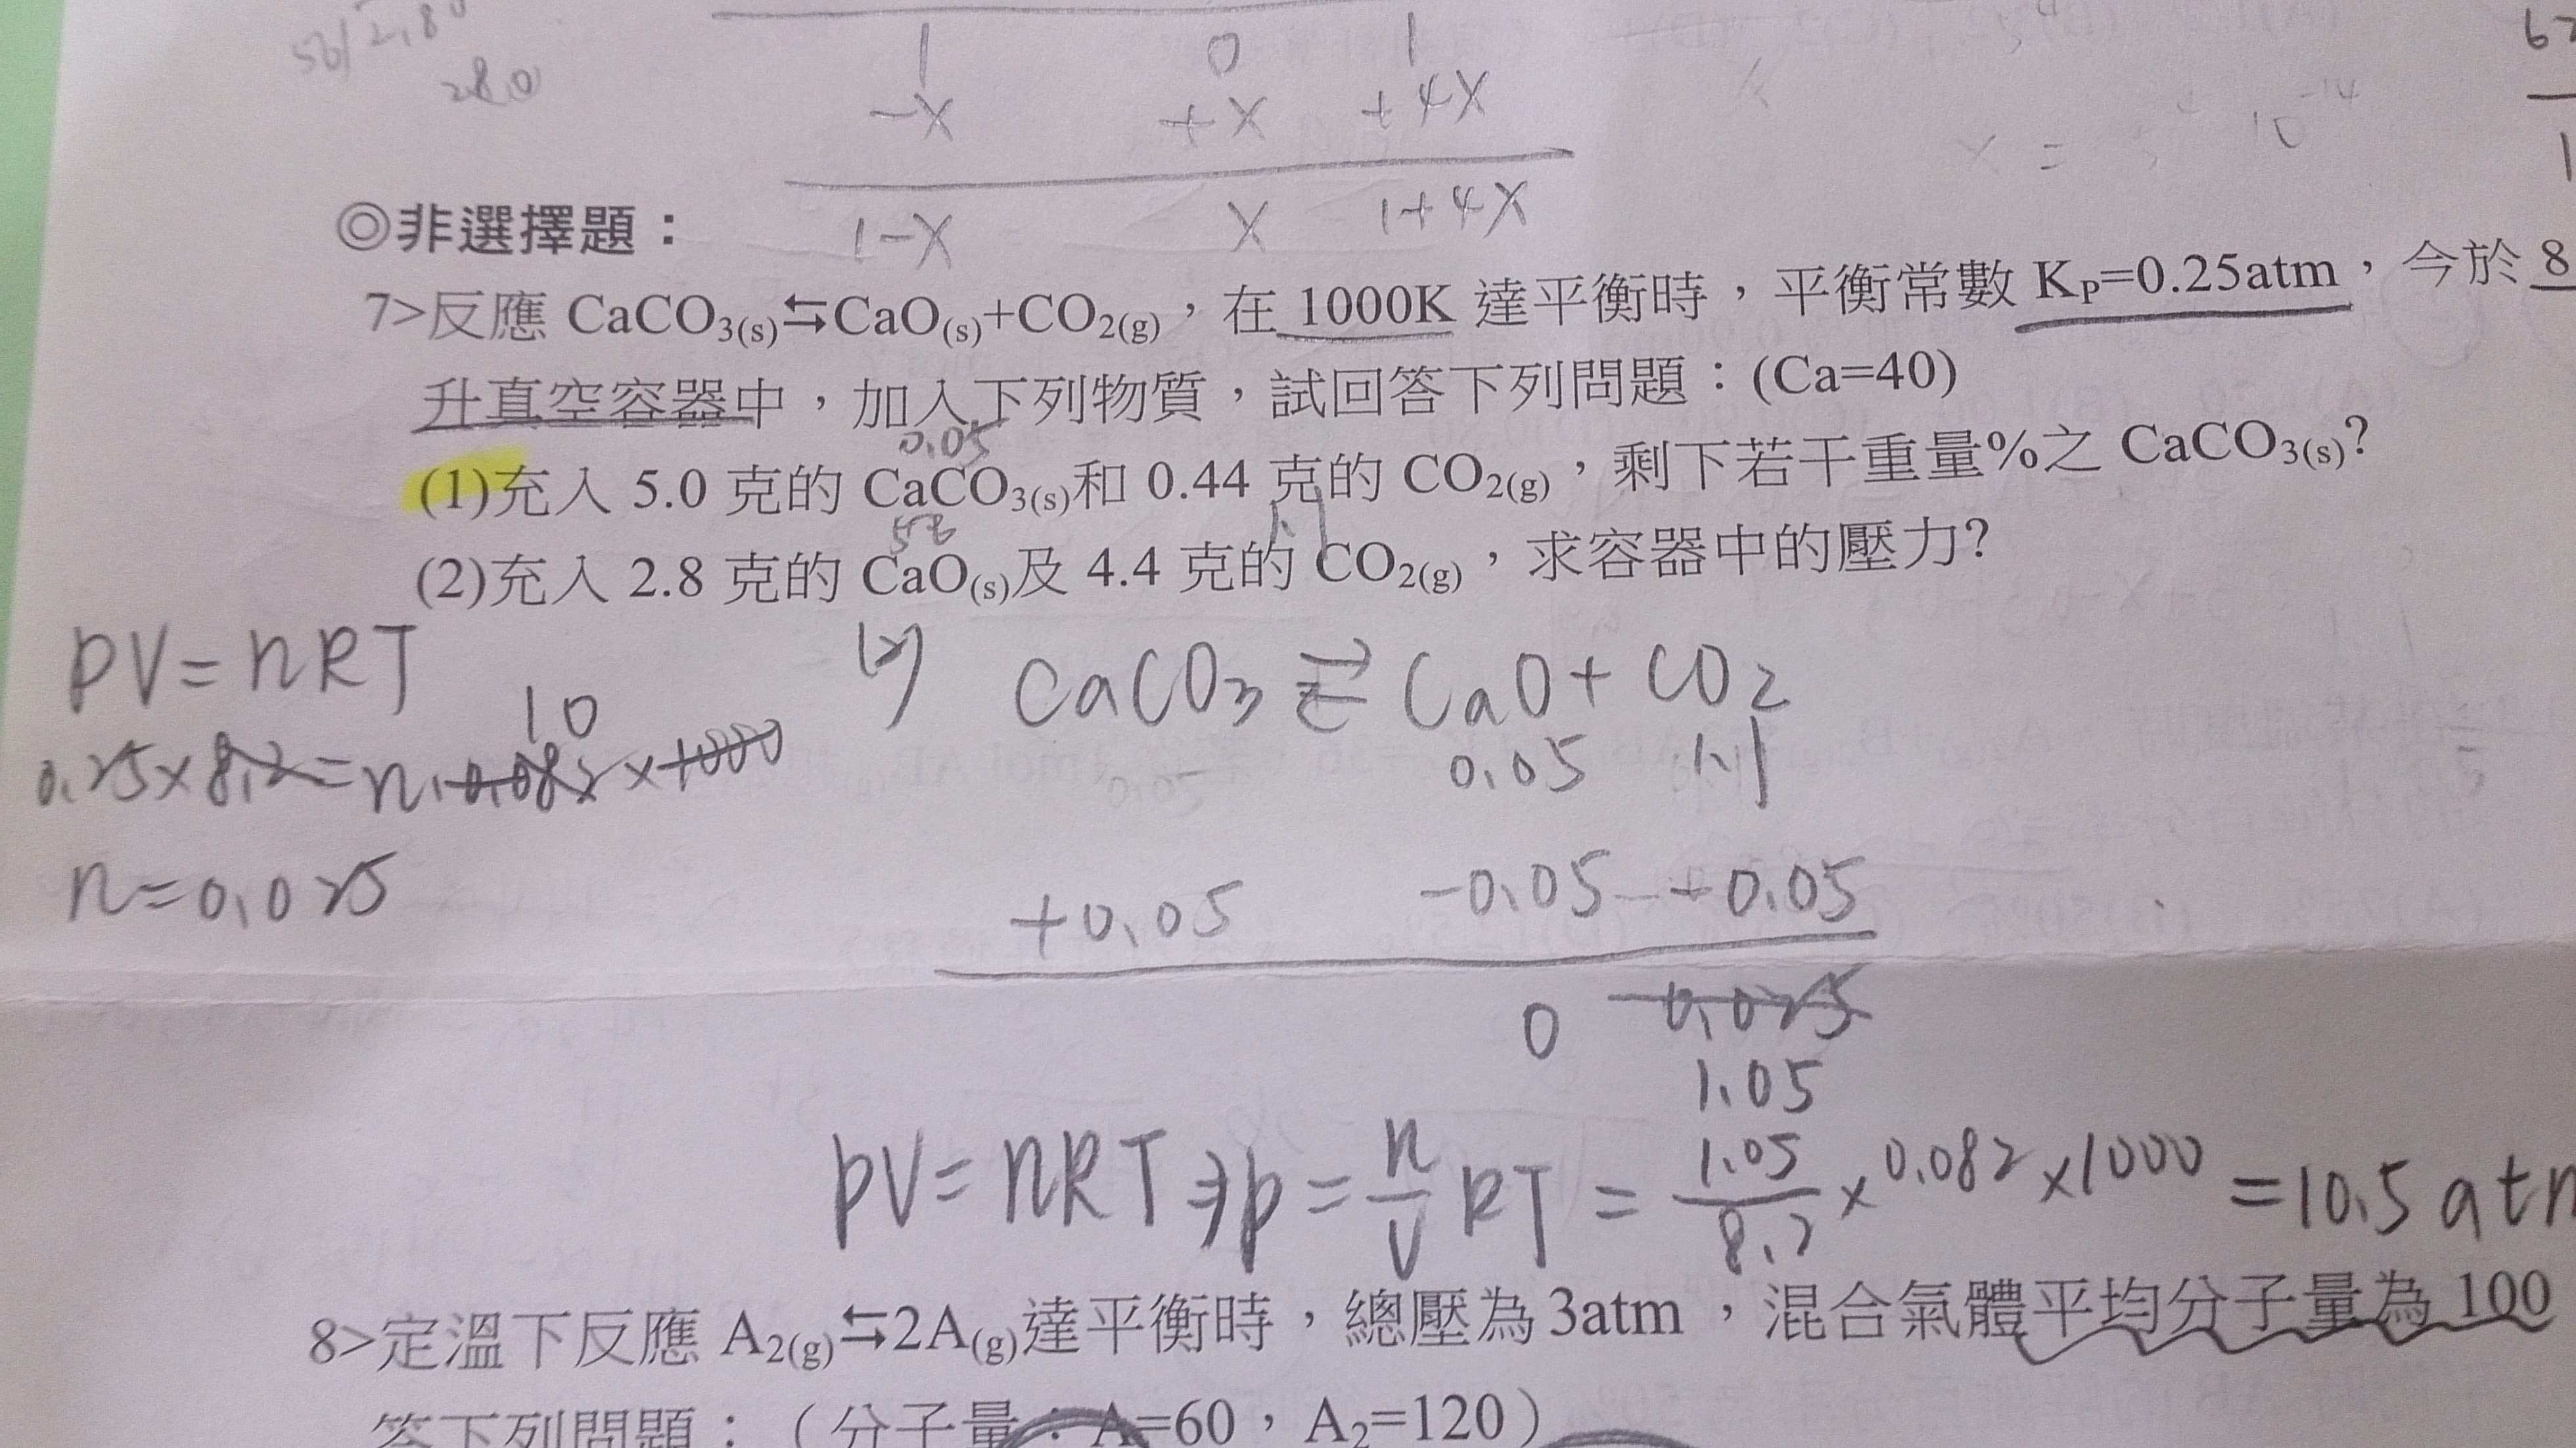 1 0 1
-X +X +4X
1-X X 1+4X
◎非選擇題：
7>反應 CaCO3(s)⇆CaO(s)+CO2(g)，在 1000K 達平衡時，平衡常數 KP=0.25atm，今於 8
升真空容器中，加入下列物質，試回答下列問題：(Ca=40)
0.05
(1)充入 5.0 克的 CaCO3(s)和 0.44 克的 CO2(g)，剩下若干重量%之 CaCO3(s)?
56
(2)充入 2.8 克的 CaO(s)及 4.4 克的 CO2(g)，求容器中的壓力?
PV=nRT
10
0.25×8.2=n.0.082×1000
n=0.025
(2) CaCO3 ⇄ CaO+CO2
0.05 1.1
+0.05 -0.05 -0.05
0 0.025
1.05
PV=nRT⇒P=n/V RT=1.05/8.2×0.082×1000=10.5 atm
8>定溫下反應 A2(g)⇆2A(g)達平衡時，總壓為 3atm，混合氣體平均分子量為 100
答下列問題：（分子量：A=60，A2=120）